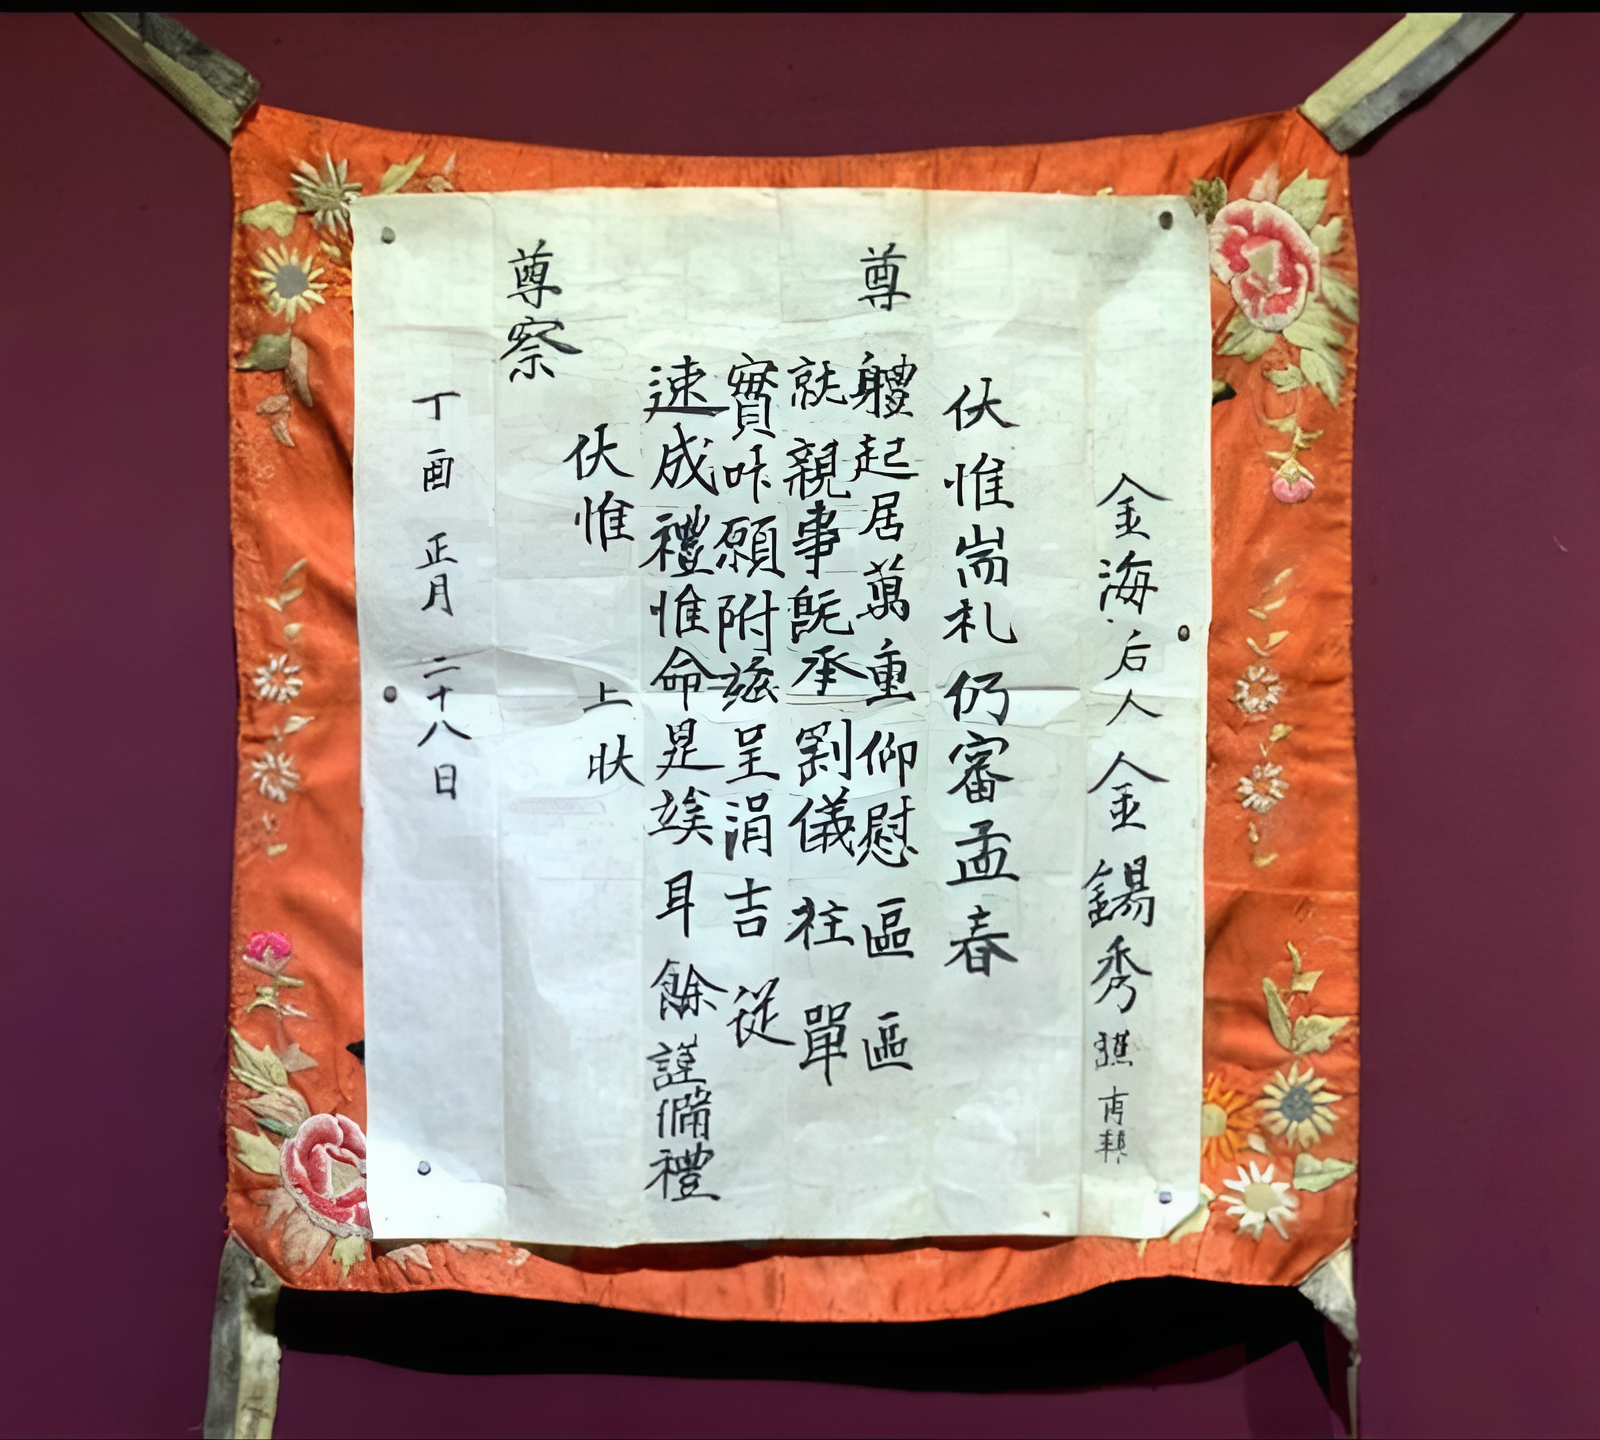 金海后人金錫秀
伏惟耑札仍審孟春
尊軆起居萬重仰慰區區
就親事旣承儀枉單
實叶願附玆呈涓吉從
速成禮惟命是竢耳餘謹備禮
伏惟上狀
尊察
丁酉正月二十八日